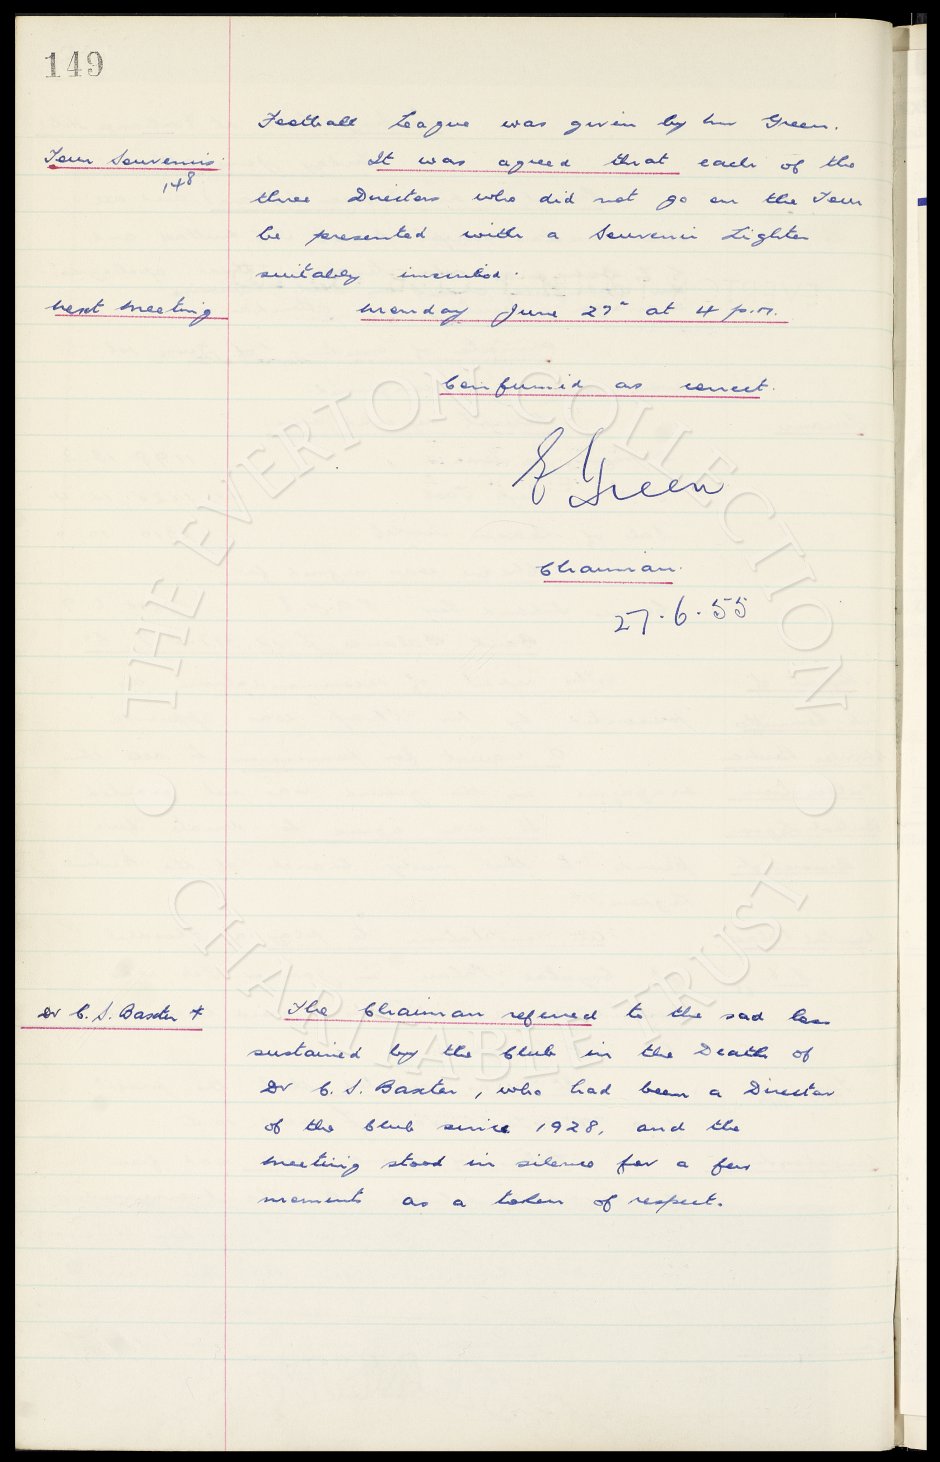 149
Football League was given by Mr Green.
Tour Souvenirs. It was agreed that each of the
148
three Directors who did not go on the Tour
be presented with a Souvenir Lighter
suitably inscribed.
Next Meeting Monday June 27th at 4 p.m.
Confirmed as correct.
E Green
Chairman.
27.6.55
Dr C. S. Baxter + The Chairman referred to the sad loss
sustained by the Club in the Death of
Dr C. S. Baxter, who had been a Director
of the Club since 1928, and the
Meeting stood in silence for a few
moments as a token of respect.
THE EVERTON COLLECTION
• CHARITABLE TRUST •